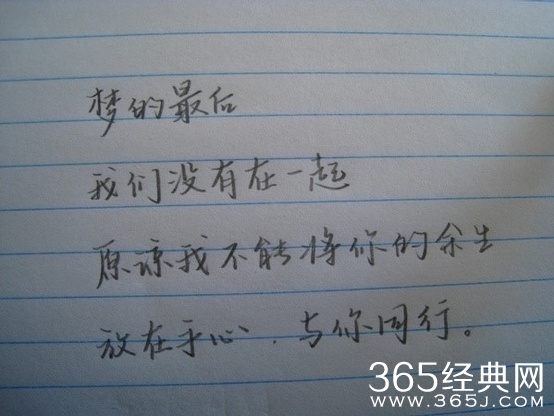 梦的最后
我们没有在一起
原谅我不能将你的余生
放在手心.与你同行。
365经典网
WWW.365J.COM